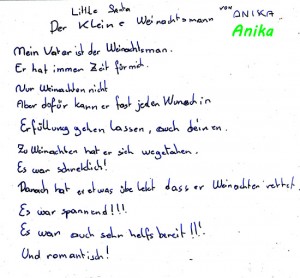 Little Santa
Der Kleine Weinachtsmann von ANIKA
Anika
Mein Vatar ist der Weinachtsman.
Er hat immen Zeit für mich.
Nur Weinachten nicht
Aber dafür kann er fast jeden Wunsch in
Erfüllung gehen lassen, auch deinen.
Zu Weinachten hat er sich wegetahen.
Es war schreklich!
Danach hat er etwas übelebt dass er Weinachten rettet.
Es war spannend!!!
Es war auch sehn helfsbereit!!!
Und romantisch!